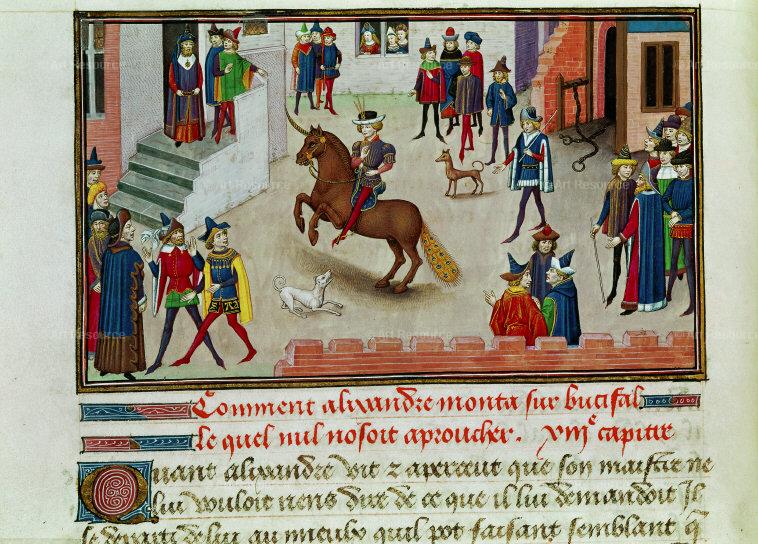 Comment alixandre monta sur bucifal
le quel nul nosoit aproucher. viijᵉ capitre
Quant alixandre vit z aperceut que son maistre ne
lui vouloit riens dire de ce que il lui demandoit Il
se departi de lui au mieulx quil pot faisant semblant q̄